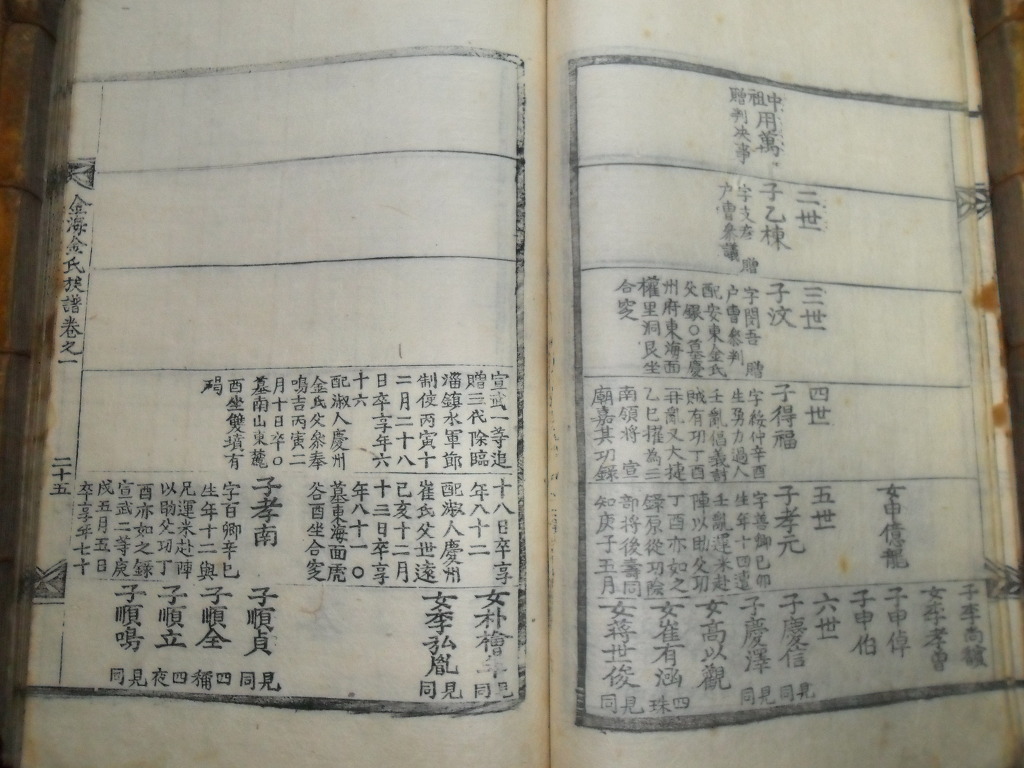 中祖用萬
贈判决事
二世
子乙棟
字支彦 贈
户曹參議
三世
子汶
字聞吾 贈
户曹參判
配安東金氏
父○墓慶
州府東海面
權里洞艮坐
合窆
四世
子得福
字綏仲辛酉
生勇力過人
壬亂倡義討
賊有功丁酉
再亂又大捷
乙巳擢為三
南領将 宣
廟嘉其功録
女申億龍
五世
子孝元
字善卿己卯
生年十四遭
壬亂運米赴
陣以助父功
丁酉亦如之
録原從功陞
部将後壽同
知庚子五月
子李尚馪
女李孝曾
子申倬
子申伯
六世
子慶信 見同
子慶澤 見同
女高以觀
女崔有涵 四珠
女蒋世俊 見同
宣武一等追
贈三代除臨
淄鎮水軍節
制使丙寅十
二月二十八
日卒享年六
十六
配淑人慶州
金氏父參奉
鳴吉丙寅二
月十日卒○
墓南山東麓
酉坐雙墳有
碣
十八日卒享
年八十二
配淑人慶州
崔氏父世遠
已亥十二月
十三日卒享
年八十一○
墓東海面虎
谷酉坐合窆
子孝南
字百卿辛巳
生年十二與
兄運米赴陣
以助父功丁
酉亦如之録
宣武二等庚
戌五月五日
卒享年七十
女朴檜年 見同
女李弘胤 見同
子順貞 見同
子順全 四稱
子順立 四夜
子順鳴 見同
金海金氏族譜卷之一
二十五